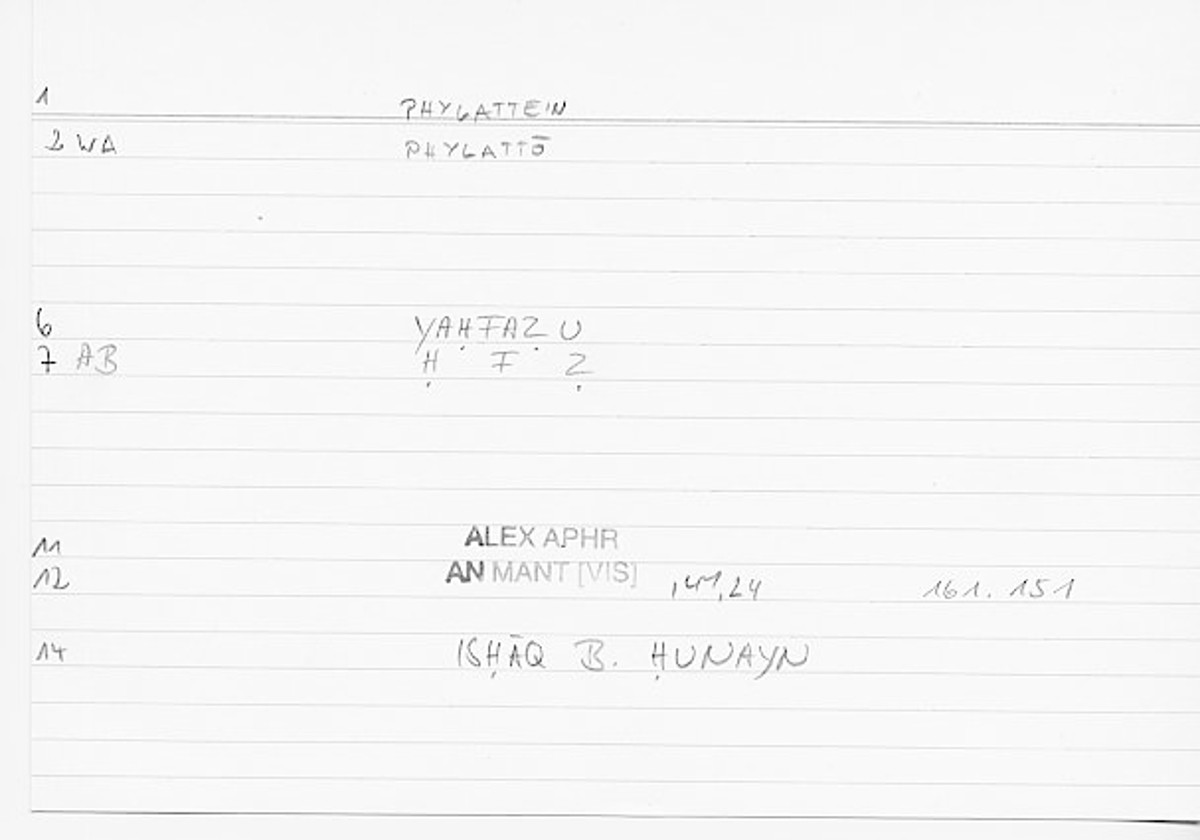 1 PHYLATTEIN
2 WA PHYLATTŌ
6 YAḤFAẒU
7 AB Ḥ F Ẓ
11 ALEX APHR
12 AN MANT [VIS] ,41,24 161. 151
14 ISḤĀQ B. ḤUNAYN